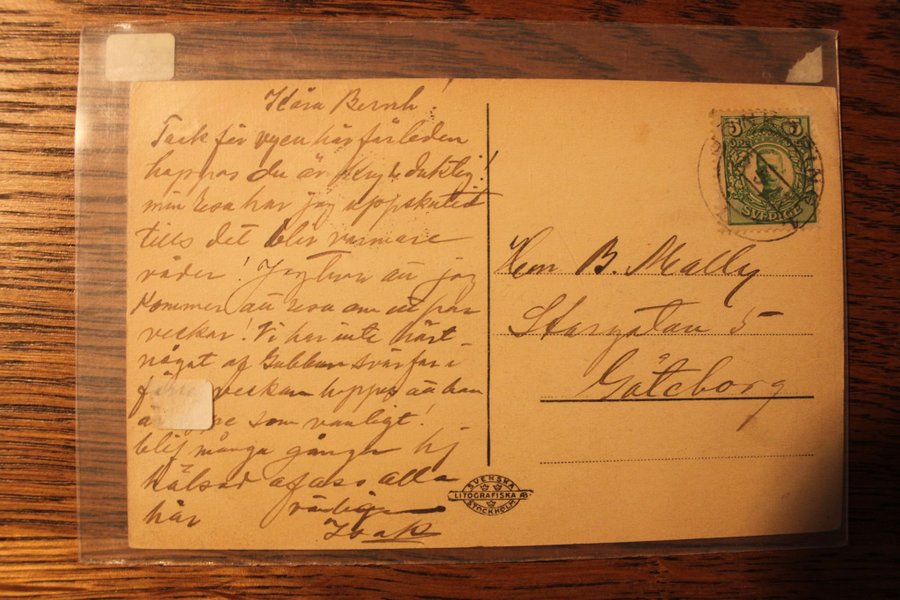 Kära Bernh!
Tack för vyen härförleden
hoppas du är Kry & duktig!
min resa har jag uppskutid
tills det blir varmare
väder! Jag tror att jag
kommer att resa om ett par
veckor! Vi har inte hört
något af Gubben svärfar i
förra veckan hoppas att han
som vanligt!
blif många gånger hj
hälsad af oss alla
här vänligen
5 5
SVERIGE
Herr B. Mally
Storgatan 5
Göteborg
SVENSKA
LITOGRAFISKA AB.
STOCKHOLM